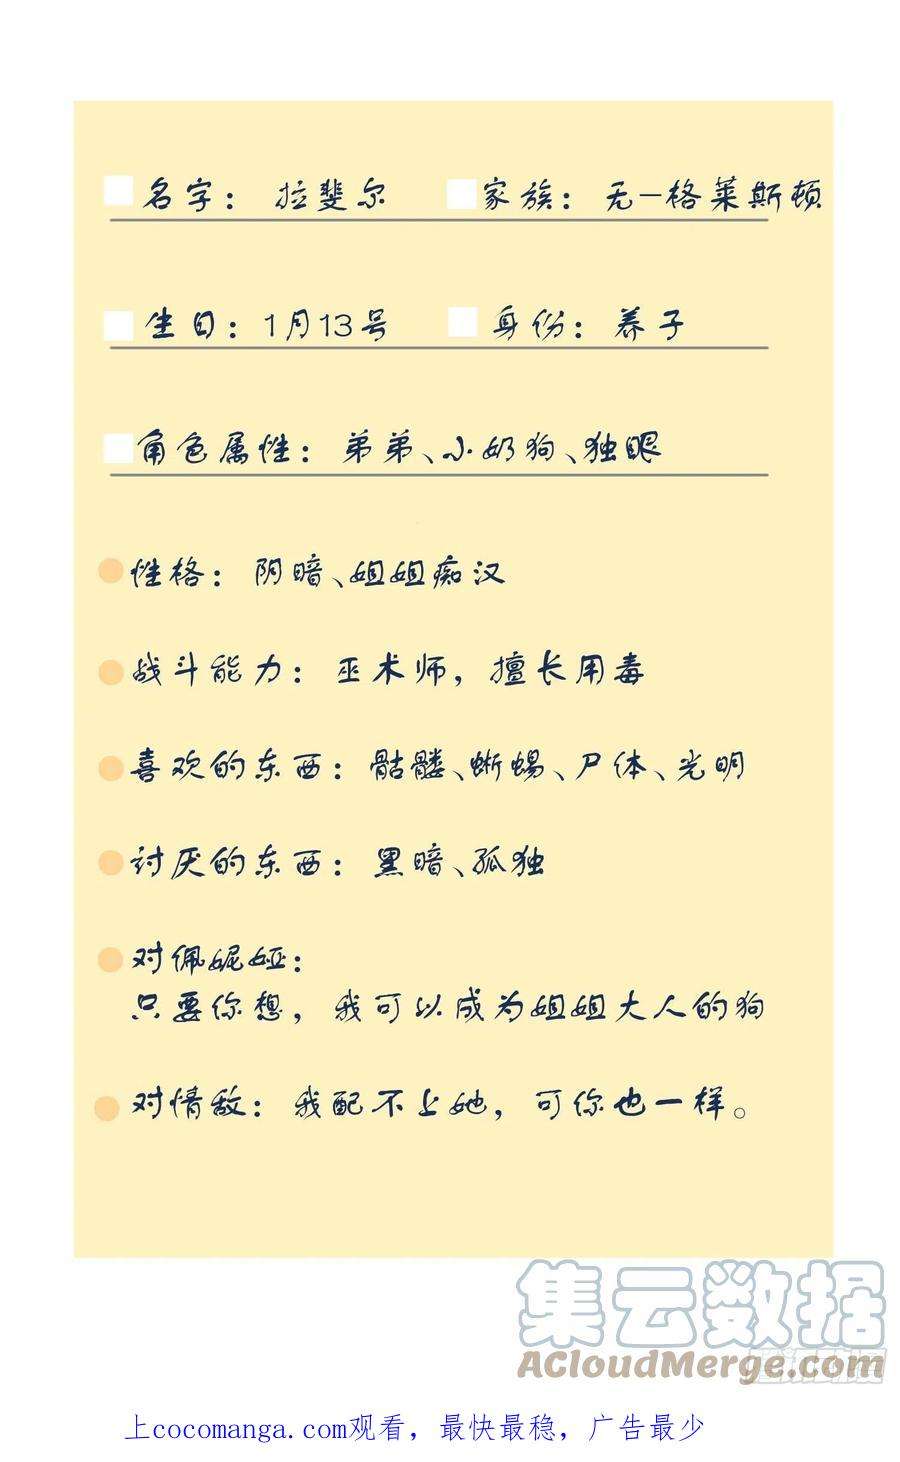 名字：拉斐尔 家族：无-格莱斯顿
生日：1月13号 身份：养子
角色属性：弟弟、小奶狗、独眼
性格：阴暗、姐姐痴汉
战斗能力：巫术师，擅长用毒
喜欢的东西：骷髅、蜥蜴、尸体、光明
讨厌的东西：黑暗、孤独
对佩妮娅：
只要你想，我可以成为姐姐大人的狗
对情敌：我配不上她，可你也一样。
集云数据
ACloudMerge.com
上cocomanga.com观看，最快最稳，广告最少